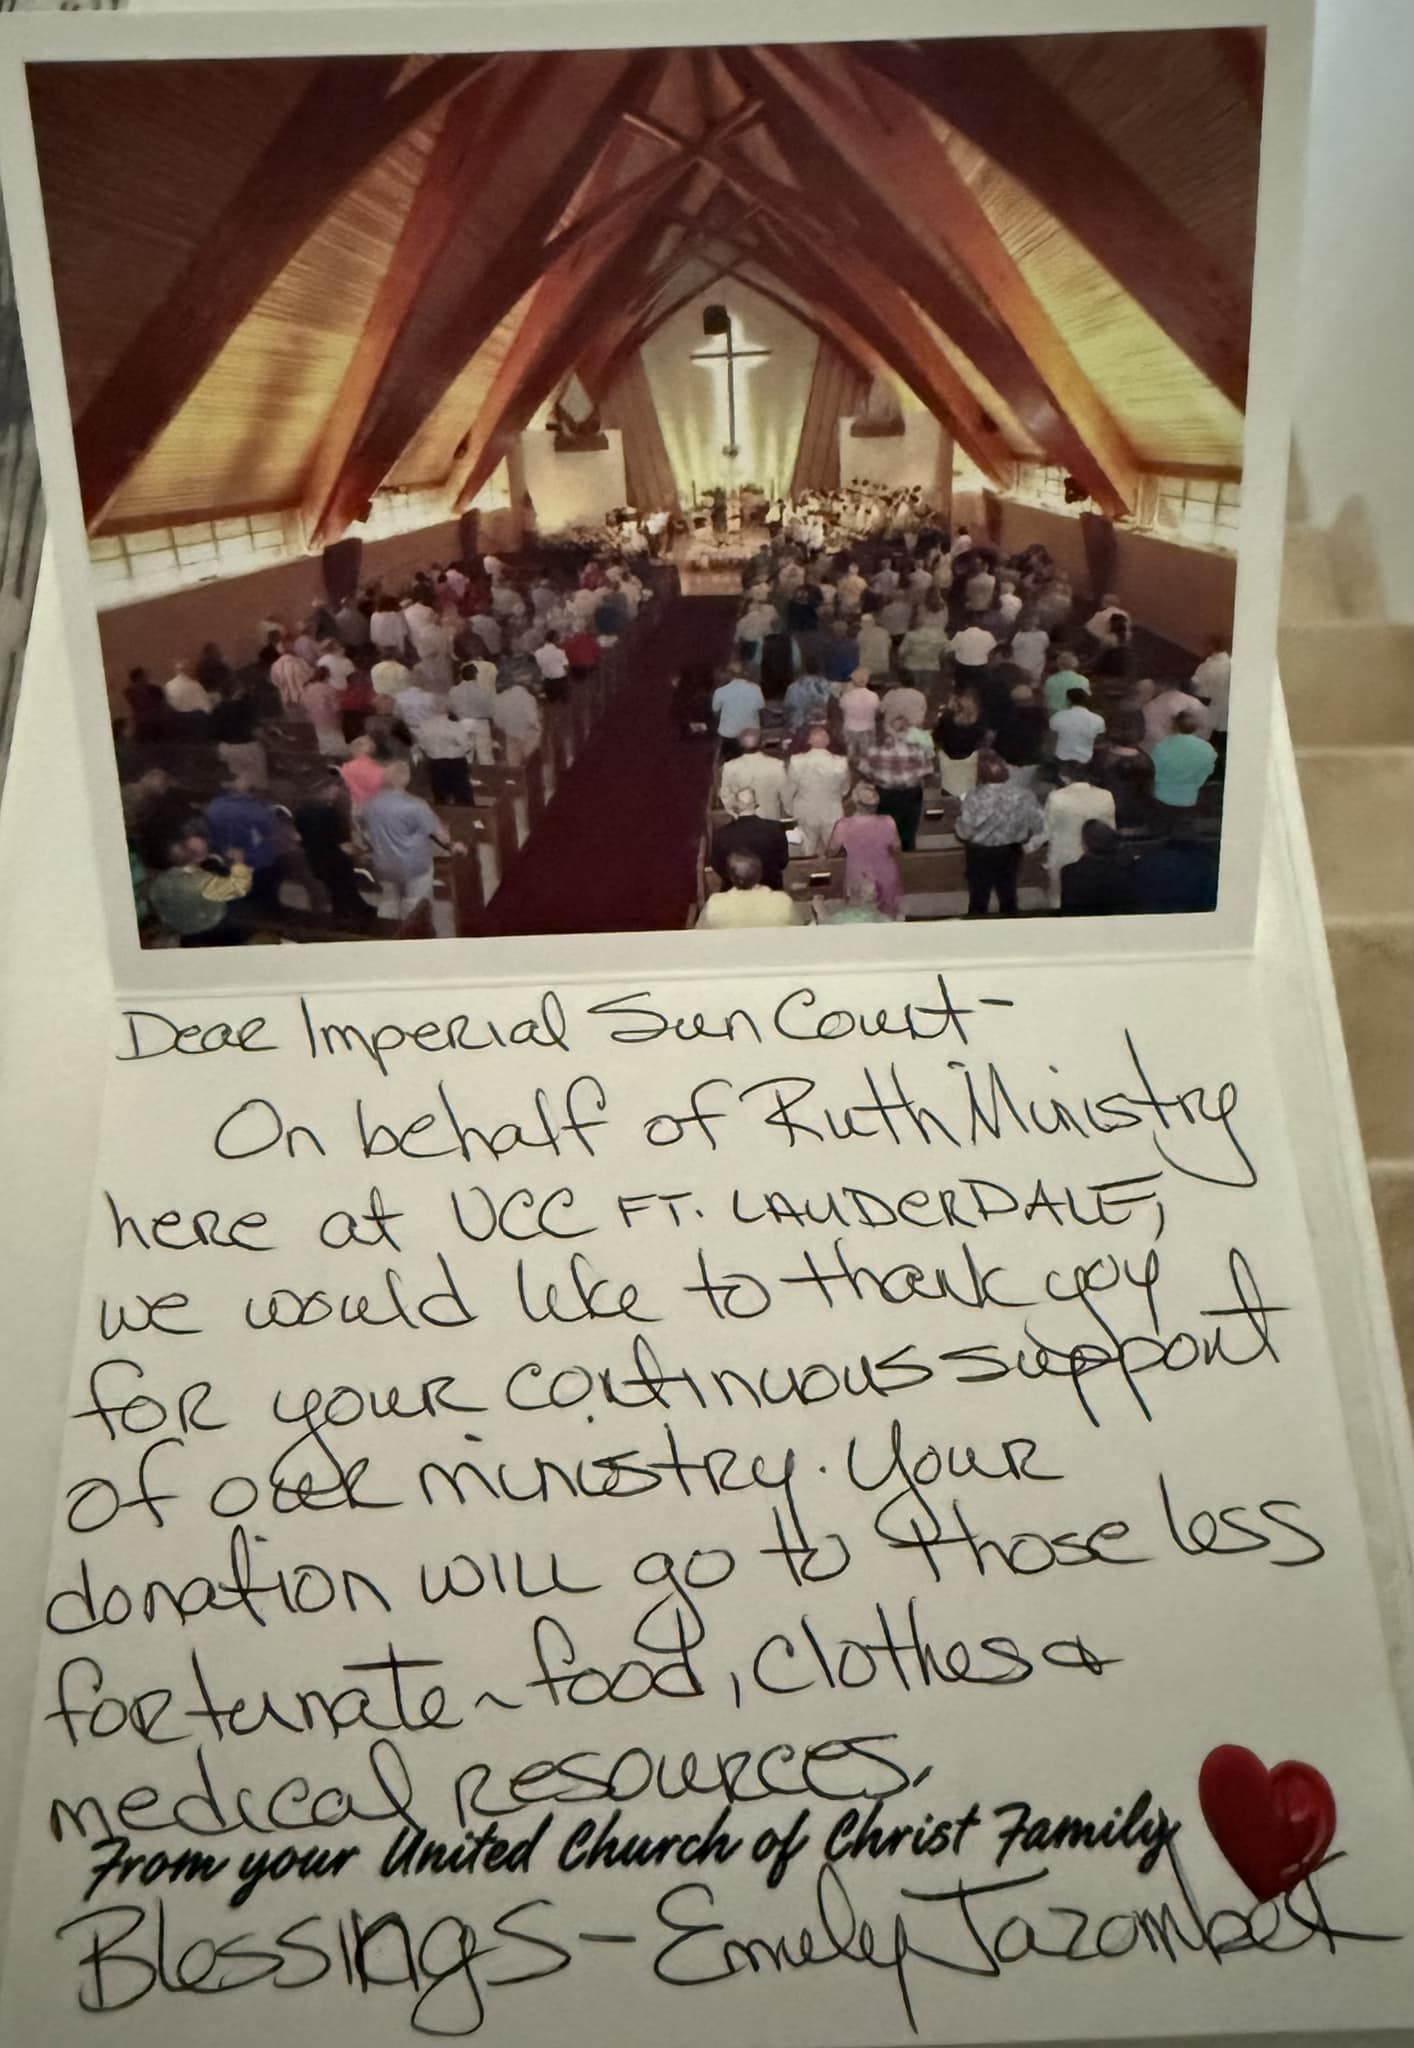 Dear Imperial Sun Court-
On behalf of Ruth Ministry
here at UCC FT. LAUDERDALE,
we would like to thank you
for your continuous support
of our ministry. Your
donation will go to those less
fortunate ~ food, clothes &
medical resources.
From your United Church of Christ Family
Blessings - Emily Jazombek